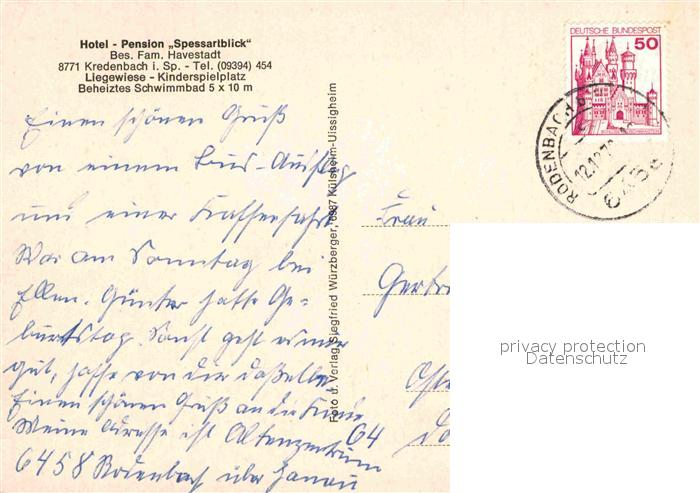 Hotel - Pension „Spessartblick"
Bes. Fam. Havestadt
8771 Kredenbach i. Sp. - Tel. (09394) 454
Liegewiese - Kinderspielplatz
Beheiztes Schwimmbad 5 x 10 m
Einen schönen Gruß
von einem Bus-Ausflug
und einer Kaffeefahrt
War am Sonntag bei
Ellen. Günter hatte Ge-
burtstag. Sonst geht es mir
gut, hoffe von dir dasselbe
Einen schönen Gruß an die Kinder
Meine Adresse ist Altenzentrum
6458 Rodenbach über Hanau
Foto u. Verlag Siegfried Würzberger, 6987 Külsheim-Uissigheim
DEUTSCHE BUNDESPOST
50
RODENBACH b
6458
Frau
Gertr
Oste
64
privacy protection
Datenschutz